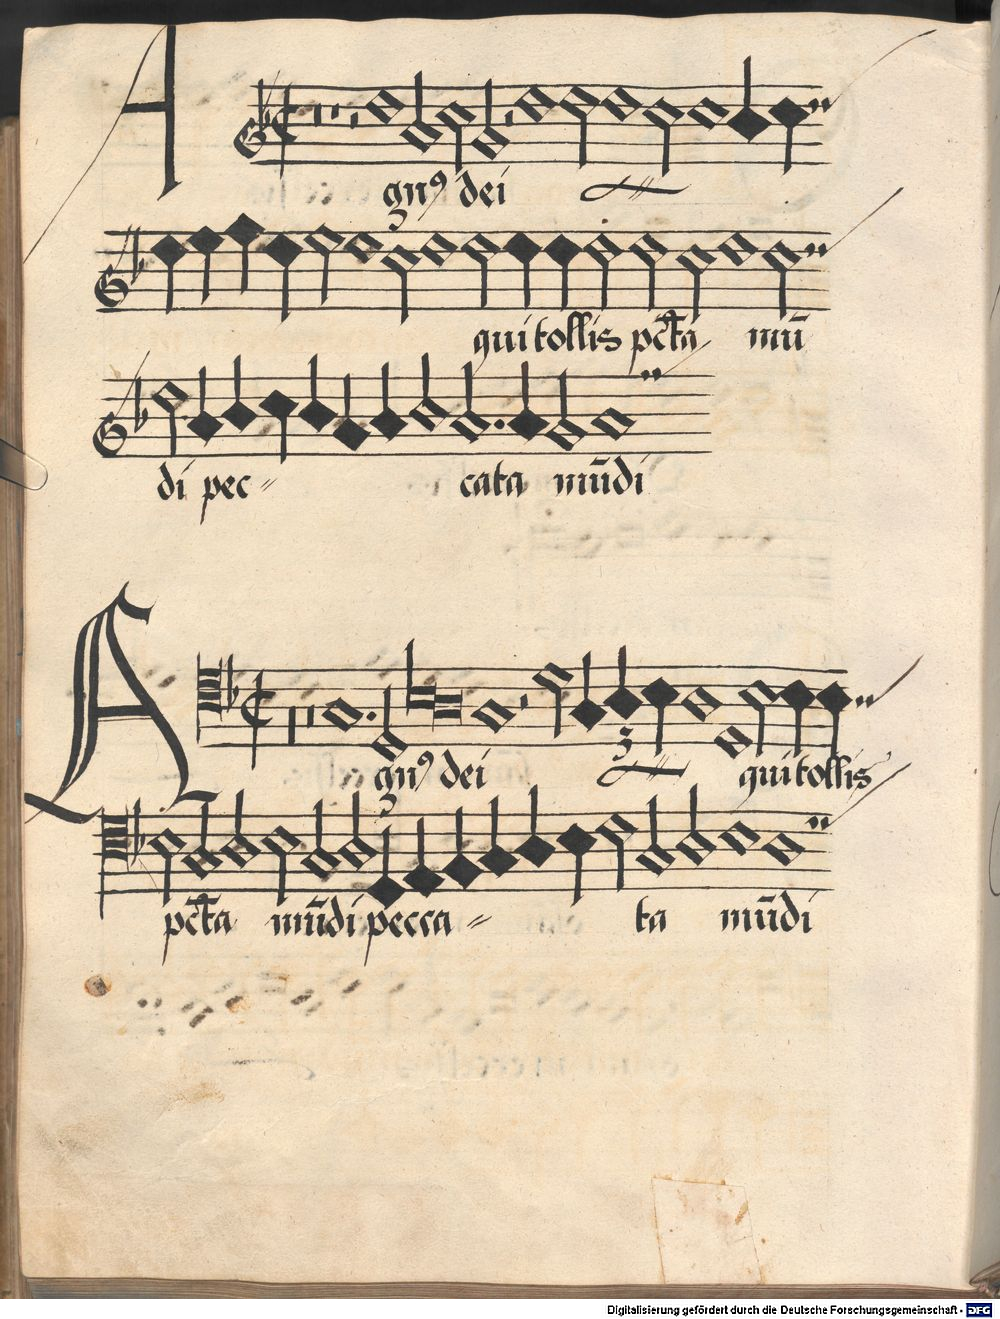 A
gnꝰ dei
qui tollis pctͣa mū
di pec〃 cata mūdi
A
gnꝰ dei qui tollis
pctͣa mūdi pecca〃 ta mūdi
Digitalisierung gefördert durch die Deutsche Forschungsgemeinschaft - DFG